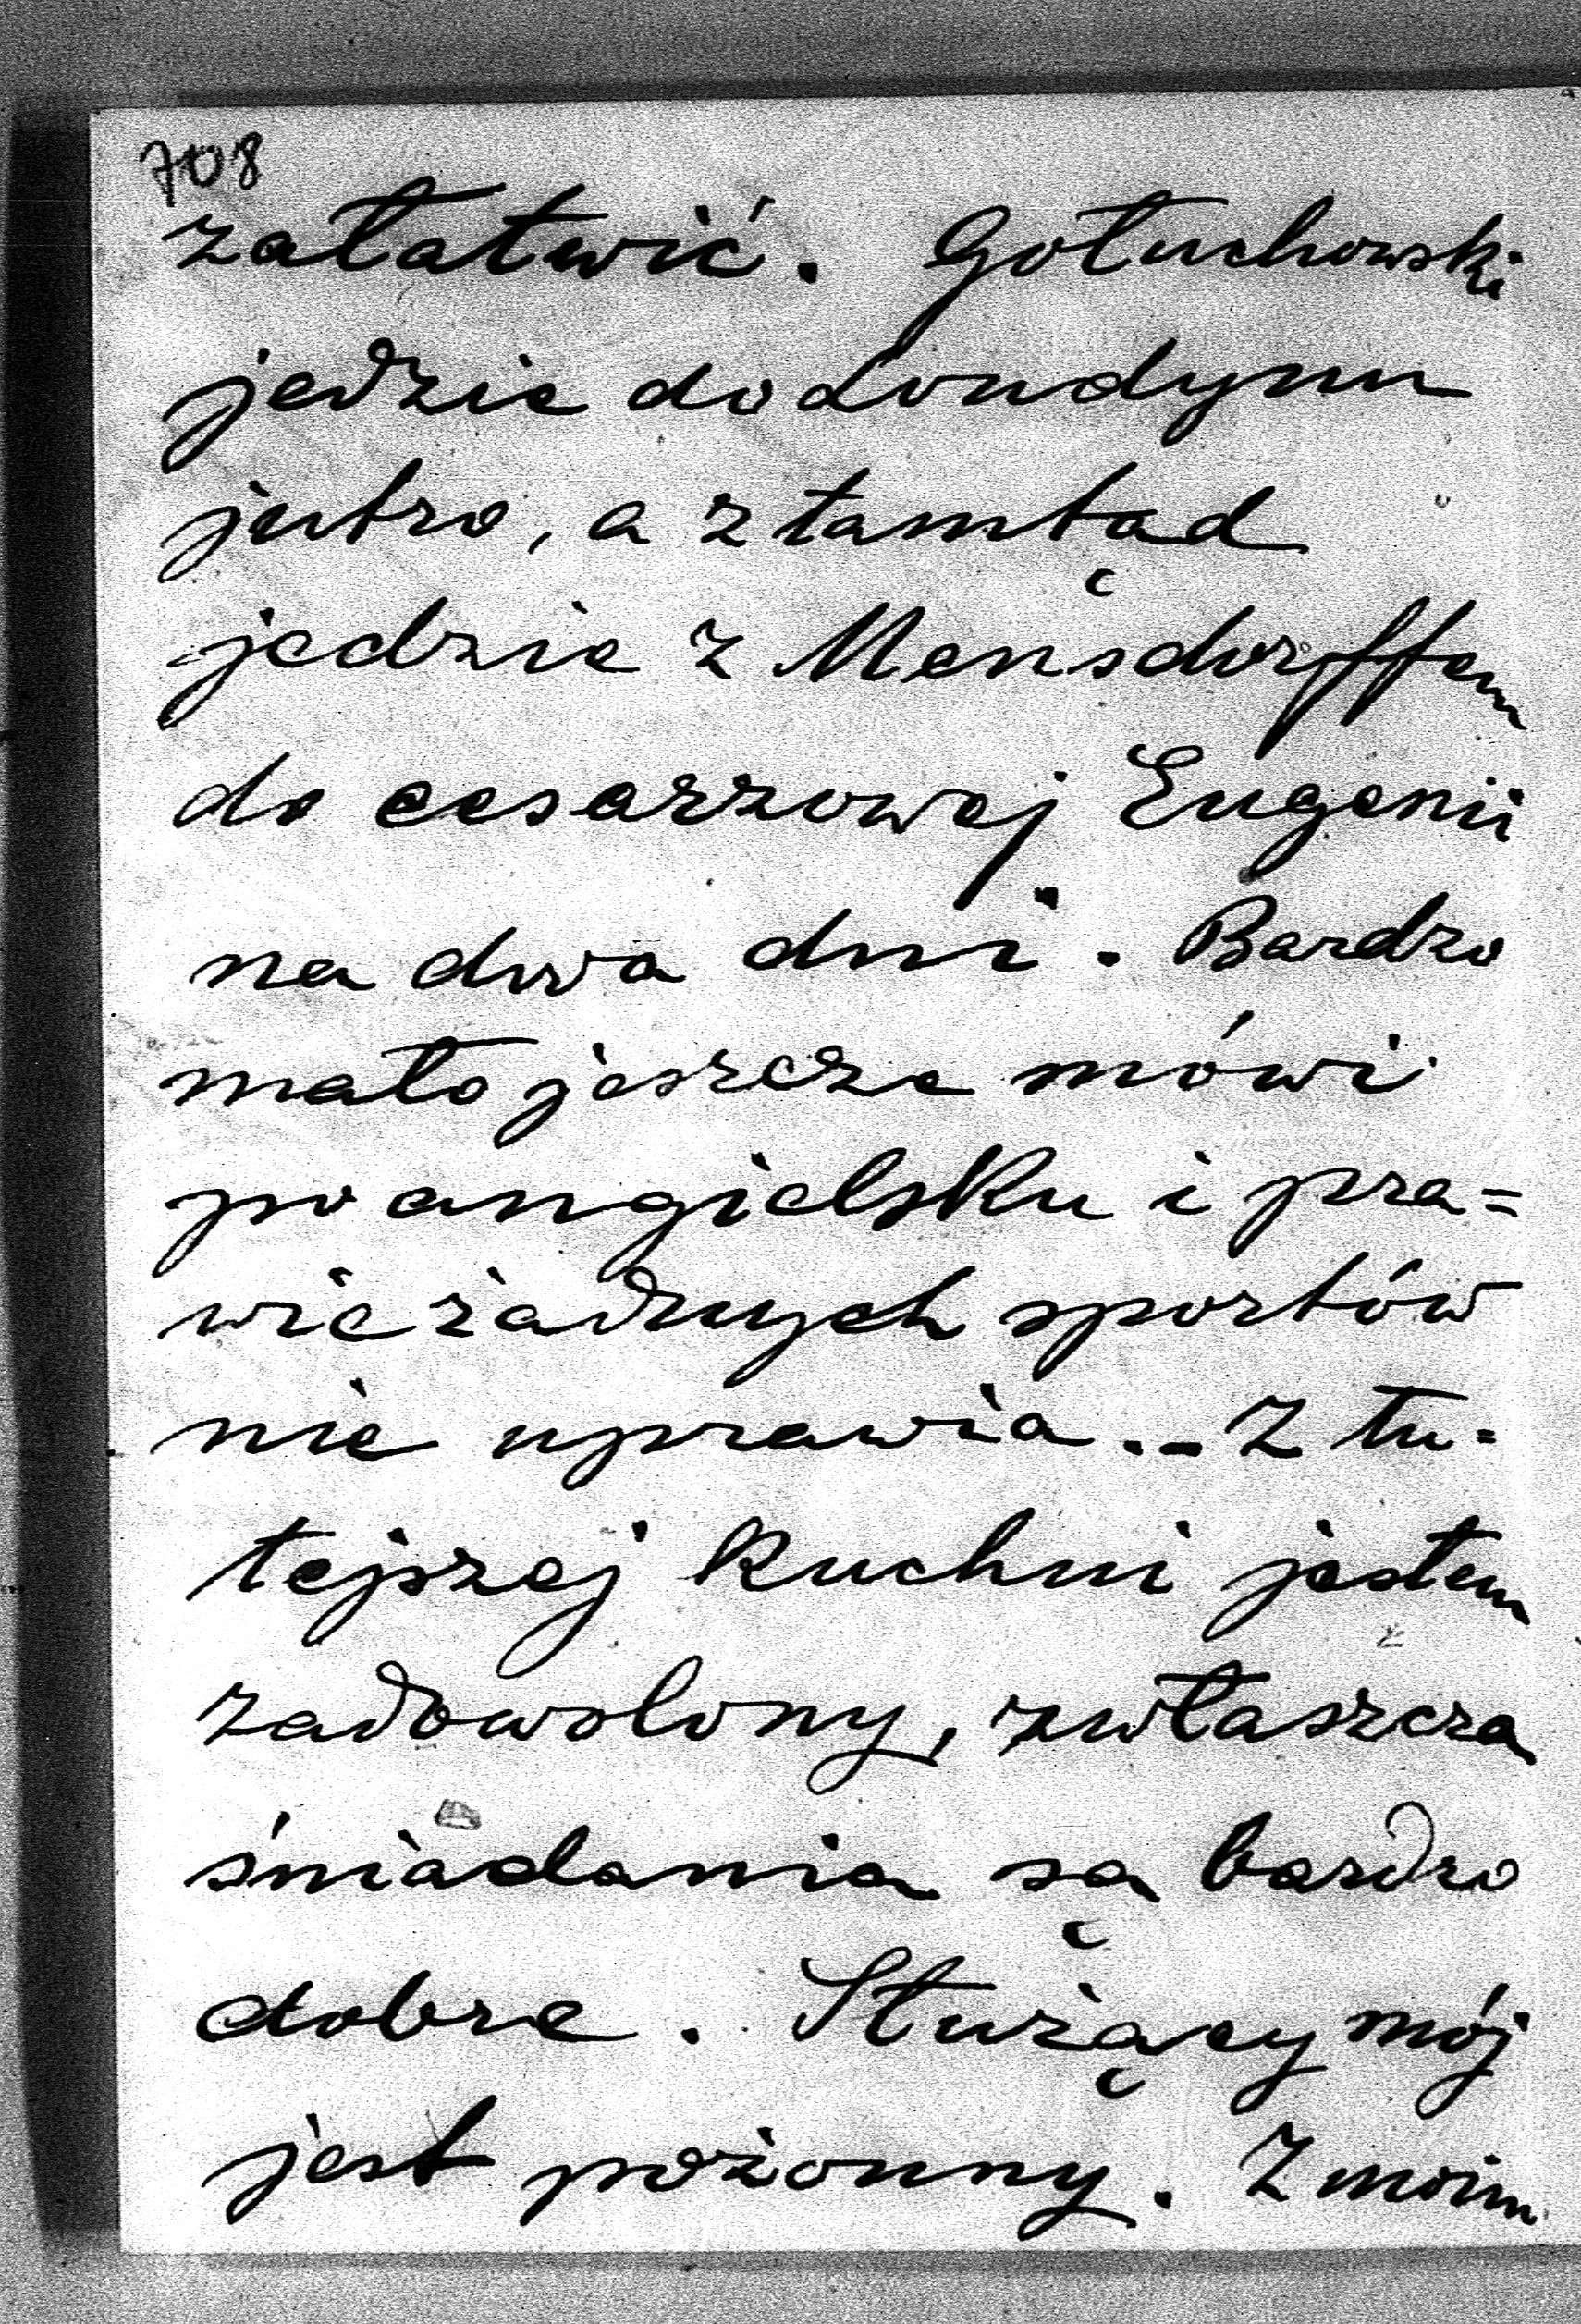 708
załatwić. Gołuchowski
jedzie do Londynu
jutro, a z tamtąd
jedzie z Mensdorffem
do cesarzowej Eugenii
na dwa dni. Bardzo
mało jeszcze mówi
po angielsku i pra=
wie żadnych sportów
nie uprawia. - Z tu=
tejszej kuchni jestem
zadowolony, zwłaszcza
śniadania są bardzo
dobre. Służący mój
jest pożonny. Z moim